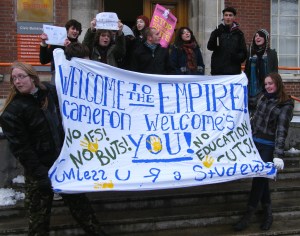 WELCOME TO THE EMPIRE!
Cameron Welcome's
YOU!
NO IFS!
NO BUTS!
NO EDUCATION CUTS!
Unless U R a Student